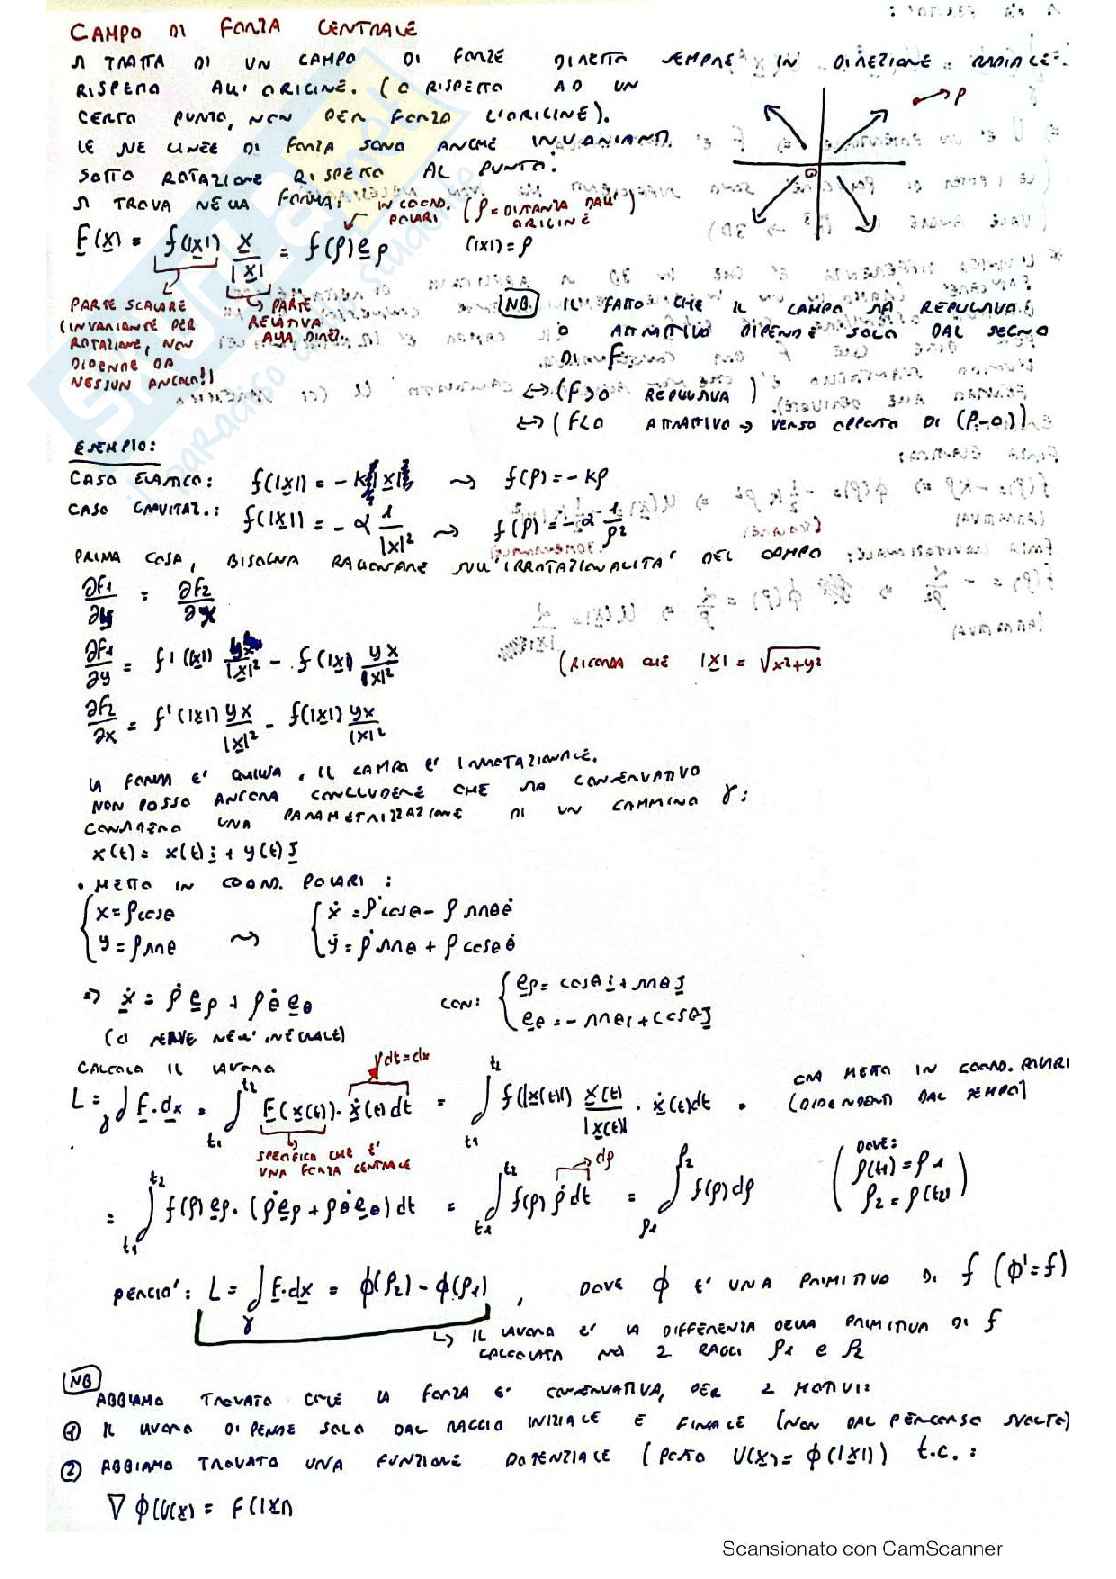 CAMPO DI FORZA CENTRALE
SI TRATTA DI UN CAMPO DI FORZE DIRETTA SEMPRE IN DIREZIONE RADIALE
RISPETTO ALL'ORIGINE. (O RISPETTO AD UN
CERTO PUNTO, NON PER FORZA L'ORIGINE).
LE SUE LINEE DI FORZA SONO ANCHE INVARIANTI
SOTTO ROTAZIONE RISPETTO AL PUNTO.
SI TROVA NELLA FORMA: IN COORD. POLARI (ρ = DISTANZA DALL'ORIGINE)
F(x) = f(|x|) x/|x| = f(ρ) eρ (|x|) = ρ
PARTE SCALARE
(INVARIANTE PER
ROTAZIONE, NON
DIPENDE DA
NESSUN ANGOLO!)
PARTE
RELATIVA
ALLA DIREZ.
NB. IL FATTO CHE IL CAMPO SIA REPULSIVO
O ATTRATTIVO DIPENDE SOLO DAL SEGNO
DI F.
↔ (F>0 REPULSIVA)
↔ (F<0 ATTRATTIVO → VERSO OPPOSTO DI (P-O))
ESEMPIO:
CASO ELASTICO: f(|x|) = -k|x| ⇝ f(ρ) = -kρ
CASO GRAVITAZ.: f(|x|) = -α 1/|x|² ⇝ f(ρ) = -α 1/ρ²
PRIMA COSA, BISOGNA RAGIONARE SULL'IRROTAZIONALITA' DEL CAMPO
∂F1/∂y = ∂F2/∂x
∂F1/∂y = f'(|x|) yx/|x|² - f(|x|) yx/|x|² (RICORDA CHE |x| = √x²+y²
∂F2/∂x = f'(|x|) yx/|x|² - f(|x|) yx/|x|²
LA FORMA E' QUINDI. IL CAMPO E' IRROTAZIONALE.
NON POSSO ANCORA CONCLUDERE CHE SIA CONSERVATIVO
CONSIDERO UNA PARAMETRIZZAZIONE DI UN CAMMINO γ:
x(t) = x(t) i + y(t) j
• METTO IN COORD. POLARI:
{x = ρcosθ ⇝ {ẋ = ρ̇cosθ - ρ sinθ θ̇
{y = ρsinθ {ẏ = ρ̇ sinθ + ρ cosθ θ̇
=> ẋ = ρ̇ eρ + ρθ̇ eθ CON: {eρ = cosθ i + sinθ j
(CI SERVE NELL'INTEGRALE) {eθ = -sinθ i + cosθ j
CALCOLO IL LAVORO
dt = dx
L = ∫γ F·dx = ∫t1 t2 F(x(t))·ẋ(t)dt = ∫t1 t2 f(|x(t)|) x(t)/|x(t)| · ẋ(t)dt =
ORA METTO IN COORD. POLARI
(DIPENDENTI DAL TEMPO)
SPECIFICO CHE E'
UNA FORZA CENTRALE
= ∫t1 t2 f(ρ) eρ·(ρ̇eρ + ρθ̇eθ)dt = ∫t1 t2 f(ρ) ρ̇ dt = ∫ρ1 ρ2 f(ρ)dρ
dρ
(DOVE: ρ(t1) = ρ1
ρ2 = ρ(t2))
PERCIO': L = ∫γ F·dx = ϕ(ρ2) - ϕ(ρ1), DOVE ϕ E' UNA PRIMITIVO DI f (ϕ'=f)
↳ IL LAVORO E' LA DIFFERENZA DELLA PRIMITIVA DI f
CALCOLATA NEI 2 RAGGI ρ1 e ρ2
NB
ABBIAMO TROVATO CHE LA FORZA E' CONSERVATIVA, PER 2 MOTIVI:
① IL LAVORO DIPENDE SOLO DAL RAGGIO INIZIALE E FINALE (NON DAL PERCORSO SVOLTO)
② ABBIAMO TROVATO UNA FUNZIONE POTENZIALE (POSTO U(x) = ϕ(|x|)) t.c.:
∇ ϕ(U(x) = F(|x|)
Scansionato con CamScanner